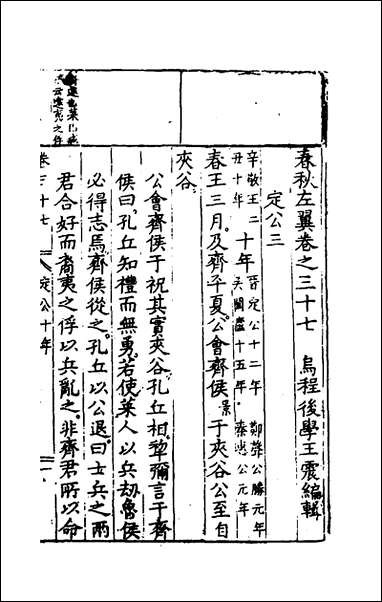 春秋左翼卷之三十七　烏程後學王震編輯
定公三
辛敬王二
丑十年
十年
晉定公十二年　鄭聲公勝元年
吳闔廬十五年。秦惠公元年
春王三月。及齊平。夏。公會齊侯。景于夾谷公至自
夾谷
公會齊侯于祝其實夾谷。孔丘相。犂彌言于齊
侯曰。孔丘知禮而無勇。若使萊人以兵刼魯侯
必得志焉齊侯從之。孔丘以公退。曰士兵之兩
君合好而裔夷之俘以兵亂之。非齊君所以命
遠也萊
云遠夷之俘
卷三十七　定公十年　一